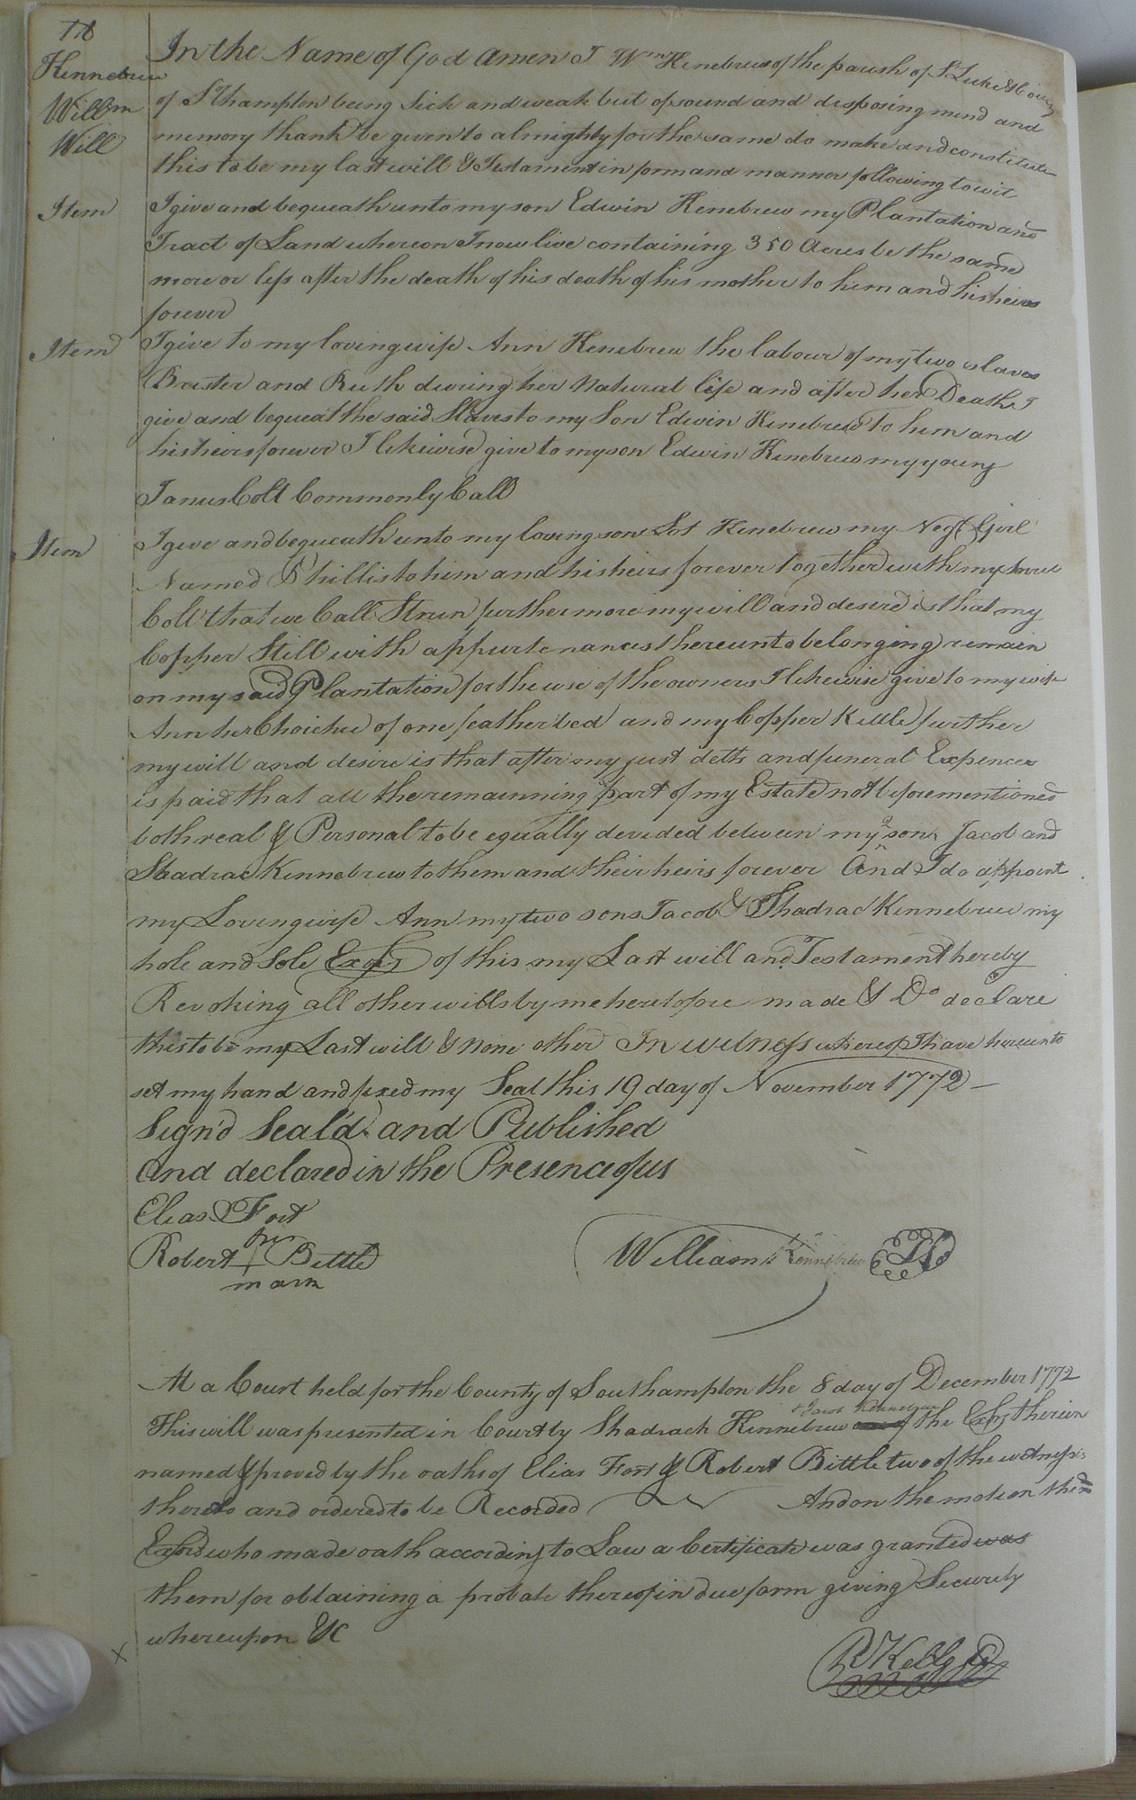 Kennebrew
Willm
Will
In the Name of God Amen I Wm Kinebrew of the parish of St Luke & County
of Sthampton being Sick and weak but of sound and disposing mind and
memory thank be given to almighty for the same do make and constitute
this to be my last will & Testament in form and manner following to wit
Item I give and bequeath unto my son Edwin Kinebrew my Plantation and
Tract of Land whereon I now live containing 350 Acres be the same
more or less after the death of his death of his mother to him and his heirs
forever
Item I give to my loving wife Ann Kinebrew the labour of my two slaves
Brister and Ruth during her Natural life and after her Death I
give and bequeat the said Slaves to my Son Edwin Kinebrew to him and
his heirs forever I likewise give to my son Edwin Kinebrew my young
Janus Colt Commonly Call
Item I give and bequeath unto my loving son Lot Kinebrew my Negr Girl
Named Phillis to him and his heirs forever together with my
Colt that we Call further more my will and desire is that my
Copper Still with appurtenances thereunto belonging remain
on my said Plantation for the use of the owners I likewise give to my wife
Ann her Choiche of one feather bed and my Copper Kittle further
my will and desire is that after my just dets and funeral Expences
is paid that all the remainning part of my Estate not beforementioned
both real & Personal to be equally devided between my 2 sons Jacob and
Shadrac Kinnebrew to them and their heirs forever And I do appoint
my Loving wife Ann my two sons Jacob & Shadrac Kinnebrew my
hole and Sole Exors of this my Last will and Testament hereby
Revoking all other wills by me heretofore made & Do declare
this to be my Last will & none other In witness whereof I have hereunto
set my hand and fixed my Seal this 19 day of November 1772
Sign'd Seal'd and Published
and declared in the Presence of us
Elias Fort
Robert Bittle
mark
William Kinnebrew
At a Court held for the County of Southampton the 8 day of December 1772
& Jacob Kinnebrew
This will was presented in Court by Shadrach Kinnebrew the Exors therein
named & proved by the oaths of Elias Fort & Robert Bittle two of the witnesses
thereto and ordered to be Recorded And on the motion of the sd
Exors who made oath according to Law a Certificate was granted was
them for obtaining a probate thereof in due form giving Security
whereupon &C